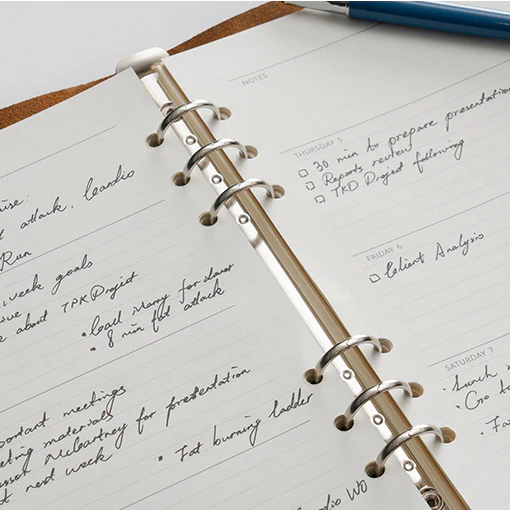 ise:
attack, Cardio
Run
week goals
k about TPK Project
• Call Marry for dinner
• 8 min fat attack
portant meetings
eting materials
McCartney for presentation
t next week
• Fat burning ladder
rdio WO
NOTES
THURSDAY 5
30 min to prepare presentation
Reports review
TKD Project following
FRIDAY 6
Client Analysis
SATURDAY 7
• Lunch
• Go to
• Fa